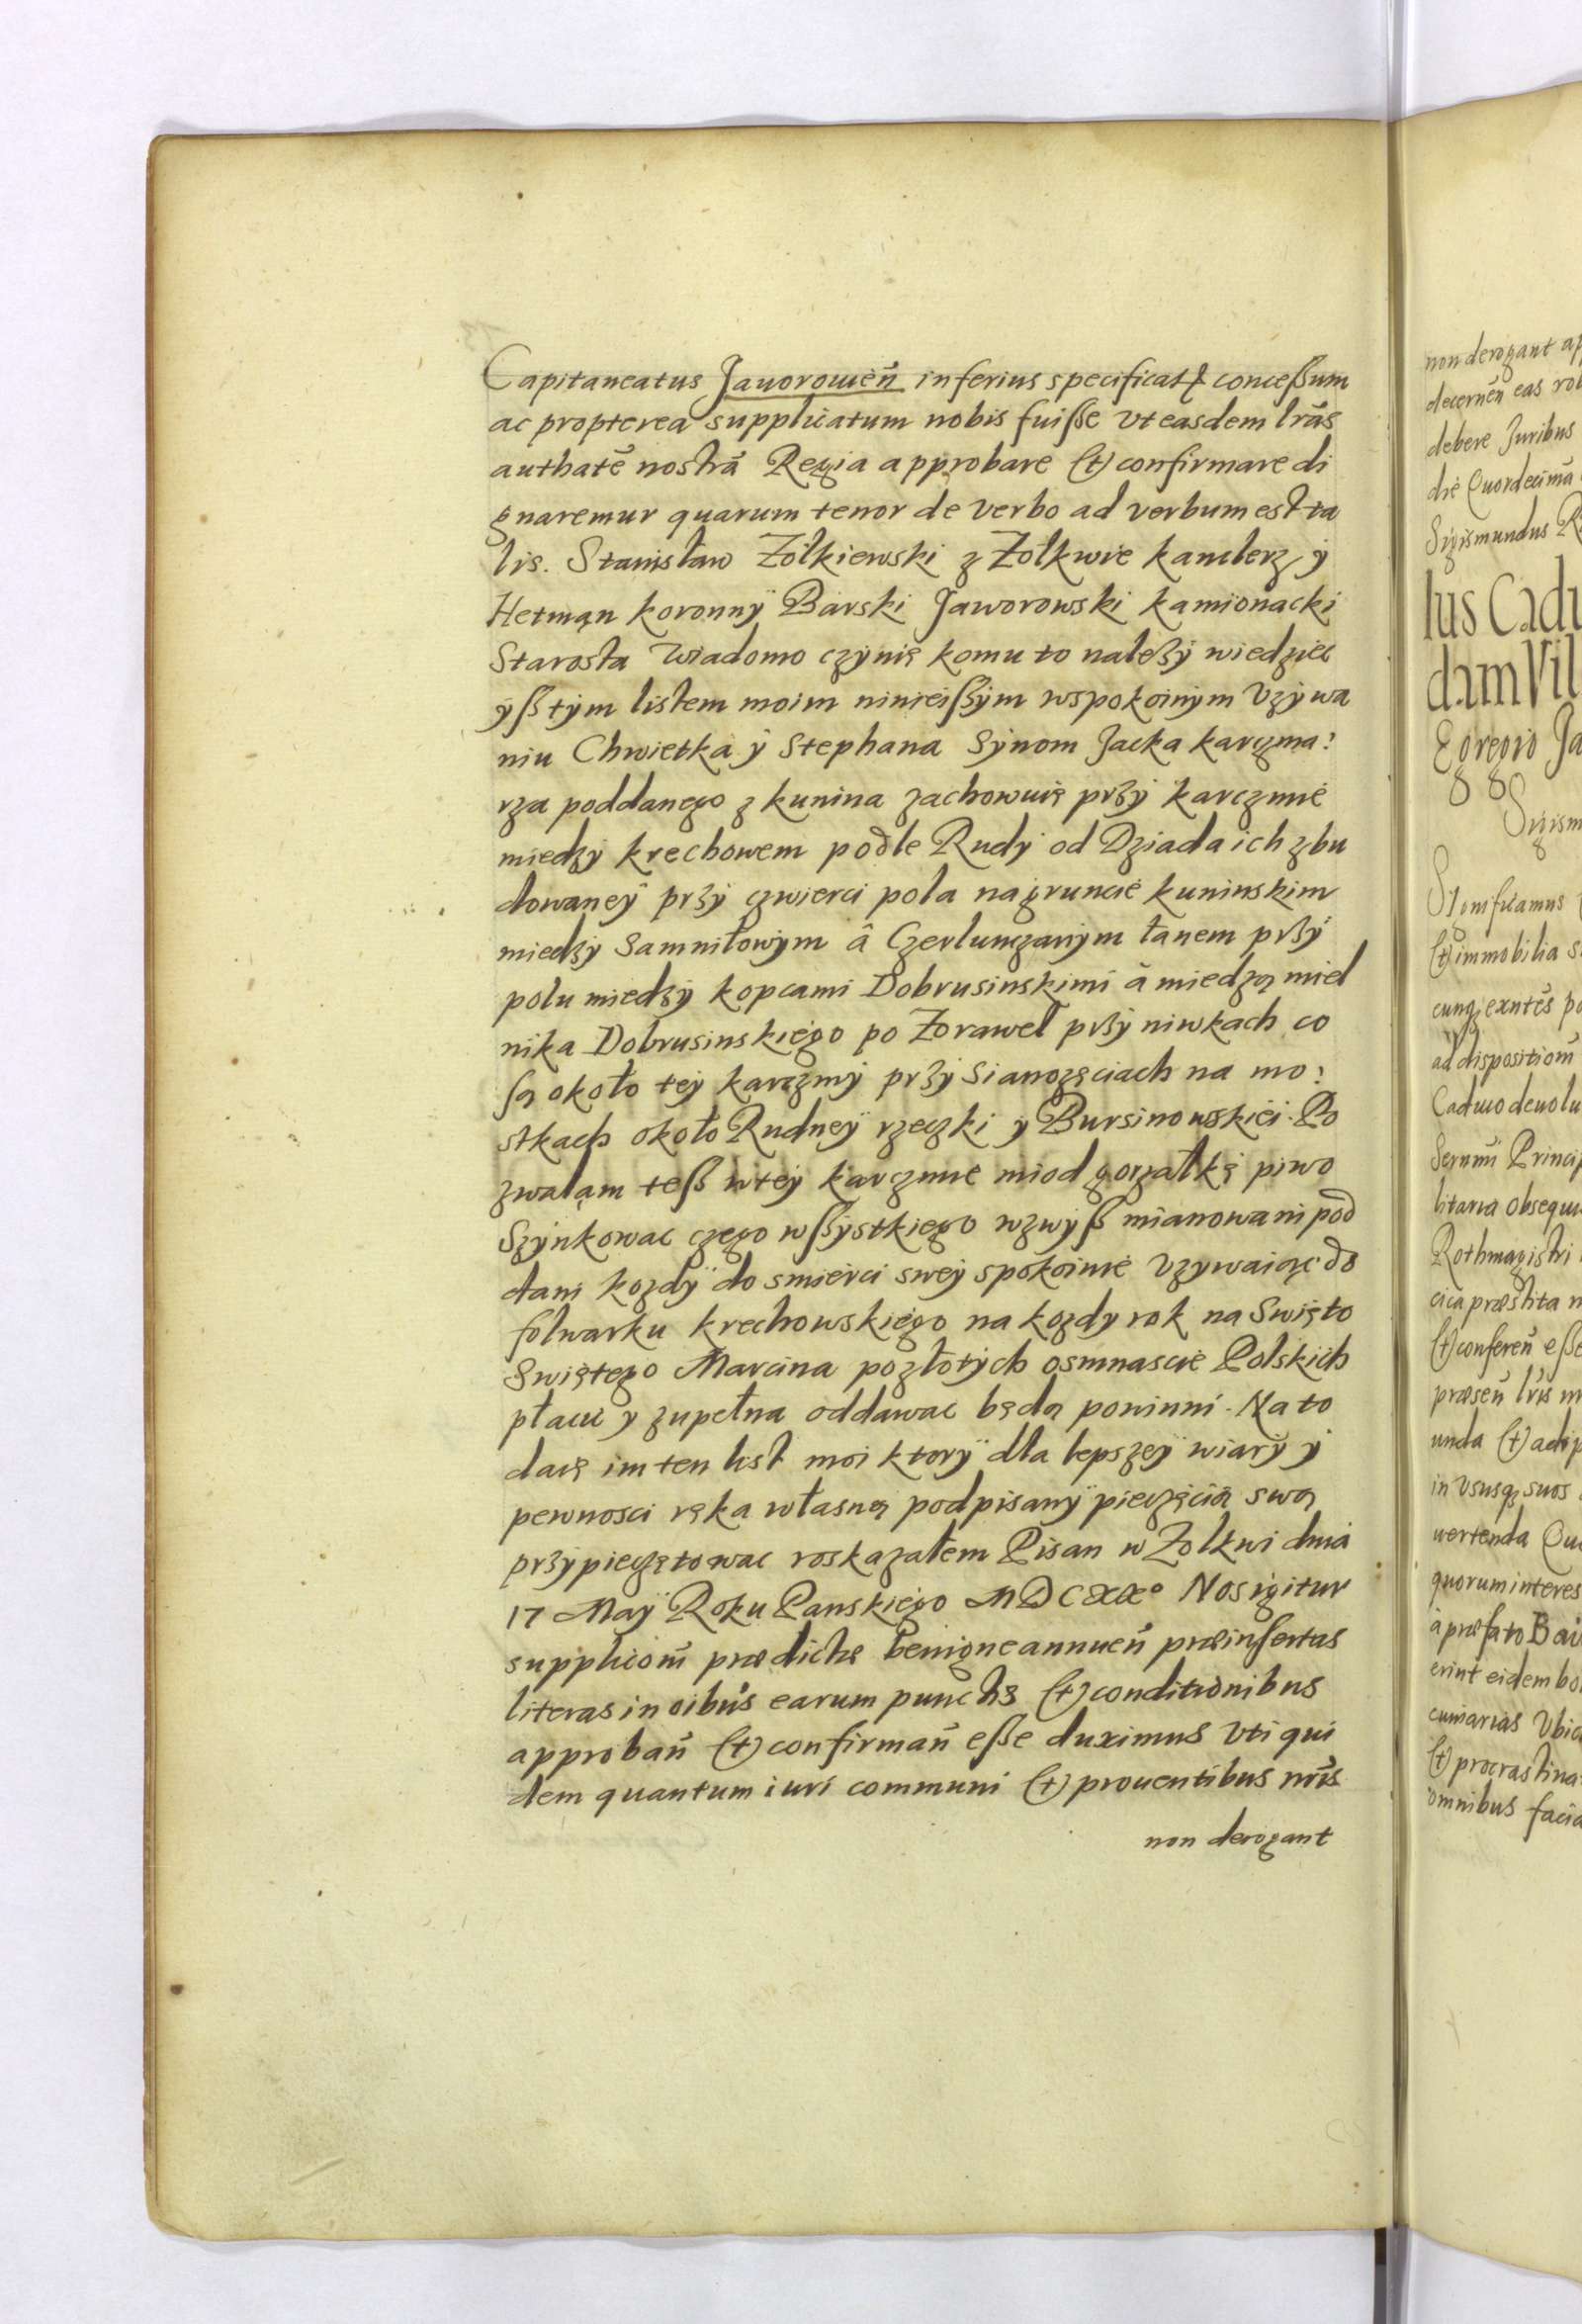 Capitaneatus Jauorouień inferius specificat concessum
ac propterea supplicatum nobis fuiße vt easdem lrãs
authatẽ nostrã Regia approbare (et) confirmare di
gnaremur quarum tenor de verbo ad verbum est ta
lis. Stanisław Zołkiewski z Zołkwie kanclerz ÿ
Hetmąn koronnÿ Barski Jaworowski kamionacki
Starosta wiadomo czÿnię komu to należÿ wiedziec
ÿß tÿm listem moim ninieißÿm wspokoinÿm vzÿwa
niu Chwietka ÿ Stephana Sÿnom Jacka karczma:
rza poddanego z kunina zachowuię przÿ karczmie
miedzÿ krechowem podle Rudÿ od Dziada ich zbu
dowaneÿ przÿ czwierci pola na gruncie kuninskim
miedzÿ Samniłowÿm â Czerlunczanÿm łanem przÿ
polu miedzÿ kopcami Dobrusinskimi à miedzą miel
nika Dobrusinskiego po Zoraweł przÿ niwkach co
są około teÿ karczmÿ przÿ Sianozęciach na mo:
stkach około Rudneÿ rzeczki ÿ Bursinowskiéi. Po
zwaląm teß wteÿ karczmie miod gorzałkę piwo
Szÿnkowac czego wßÿstkiego wzwÿß mianowani pod
dani kozdÿ do smierci sweÿ spokoinie vzywaiąc do
folwarku krechowskiego na kozdy rok na Swięto
Swiętego Marcina po złotÿch osmnascie Polskich
płacic y zupełna oddawac będą powinni. Na to
daię im ten list moi ktorÿ dla lepszeÿ wiarÿ ÿ
pewnosci ręka własną podpisanÿ pieczęcią swą
przÿpieczętowac roskazałem Pisan w Zolkwi dnia
17 Maÿ Roku Panskiego MDCXXº Nos igitur
suppliciom̃ prædictæ benigne annueñ præinsertas
literas in oibus earum punctis (et) conditionibus
approbañ (et) confirmañ eße duximus vti qui
dem quantum iuri communi (et) prouentibus nr̃is
non derogant
non derogant
decerneñ eas
debere Juribus
die Quordecimã
Sigismundus
lus Cadu
dam Vil
Egregio Ja
Sigism
Significamus
(et) immobilia
ad dispositiom̃
Caduco deuolu
Princip
litaria obsequi
Rothmagistri
præstita
(et) confereñ eße
præseñ lr̃is
unda (et)
in vsusq suos
uertenda
quorum interes
à præfato
erint eidem
(et) procrastina
omnibus facia